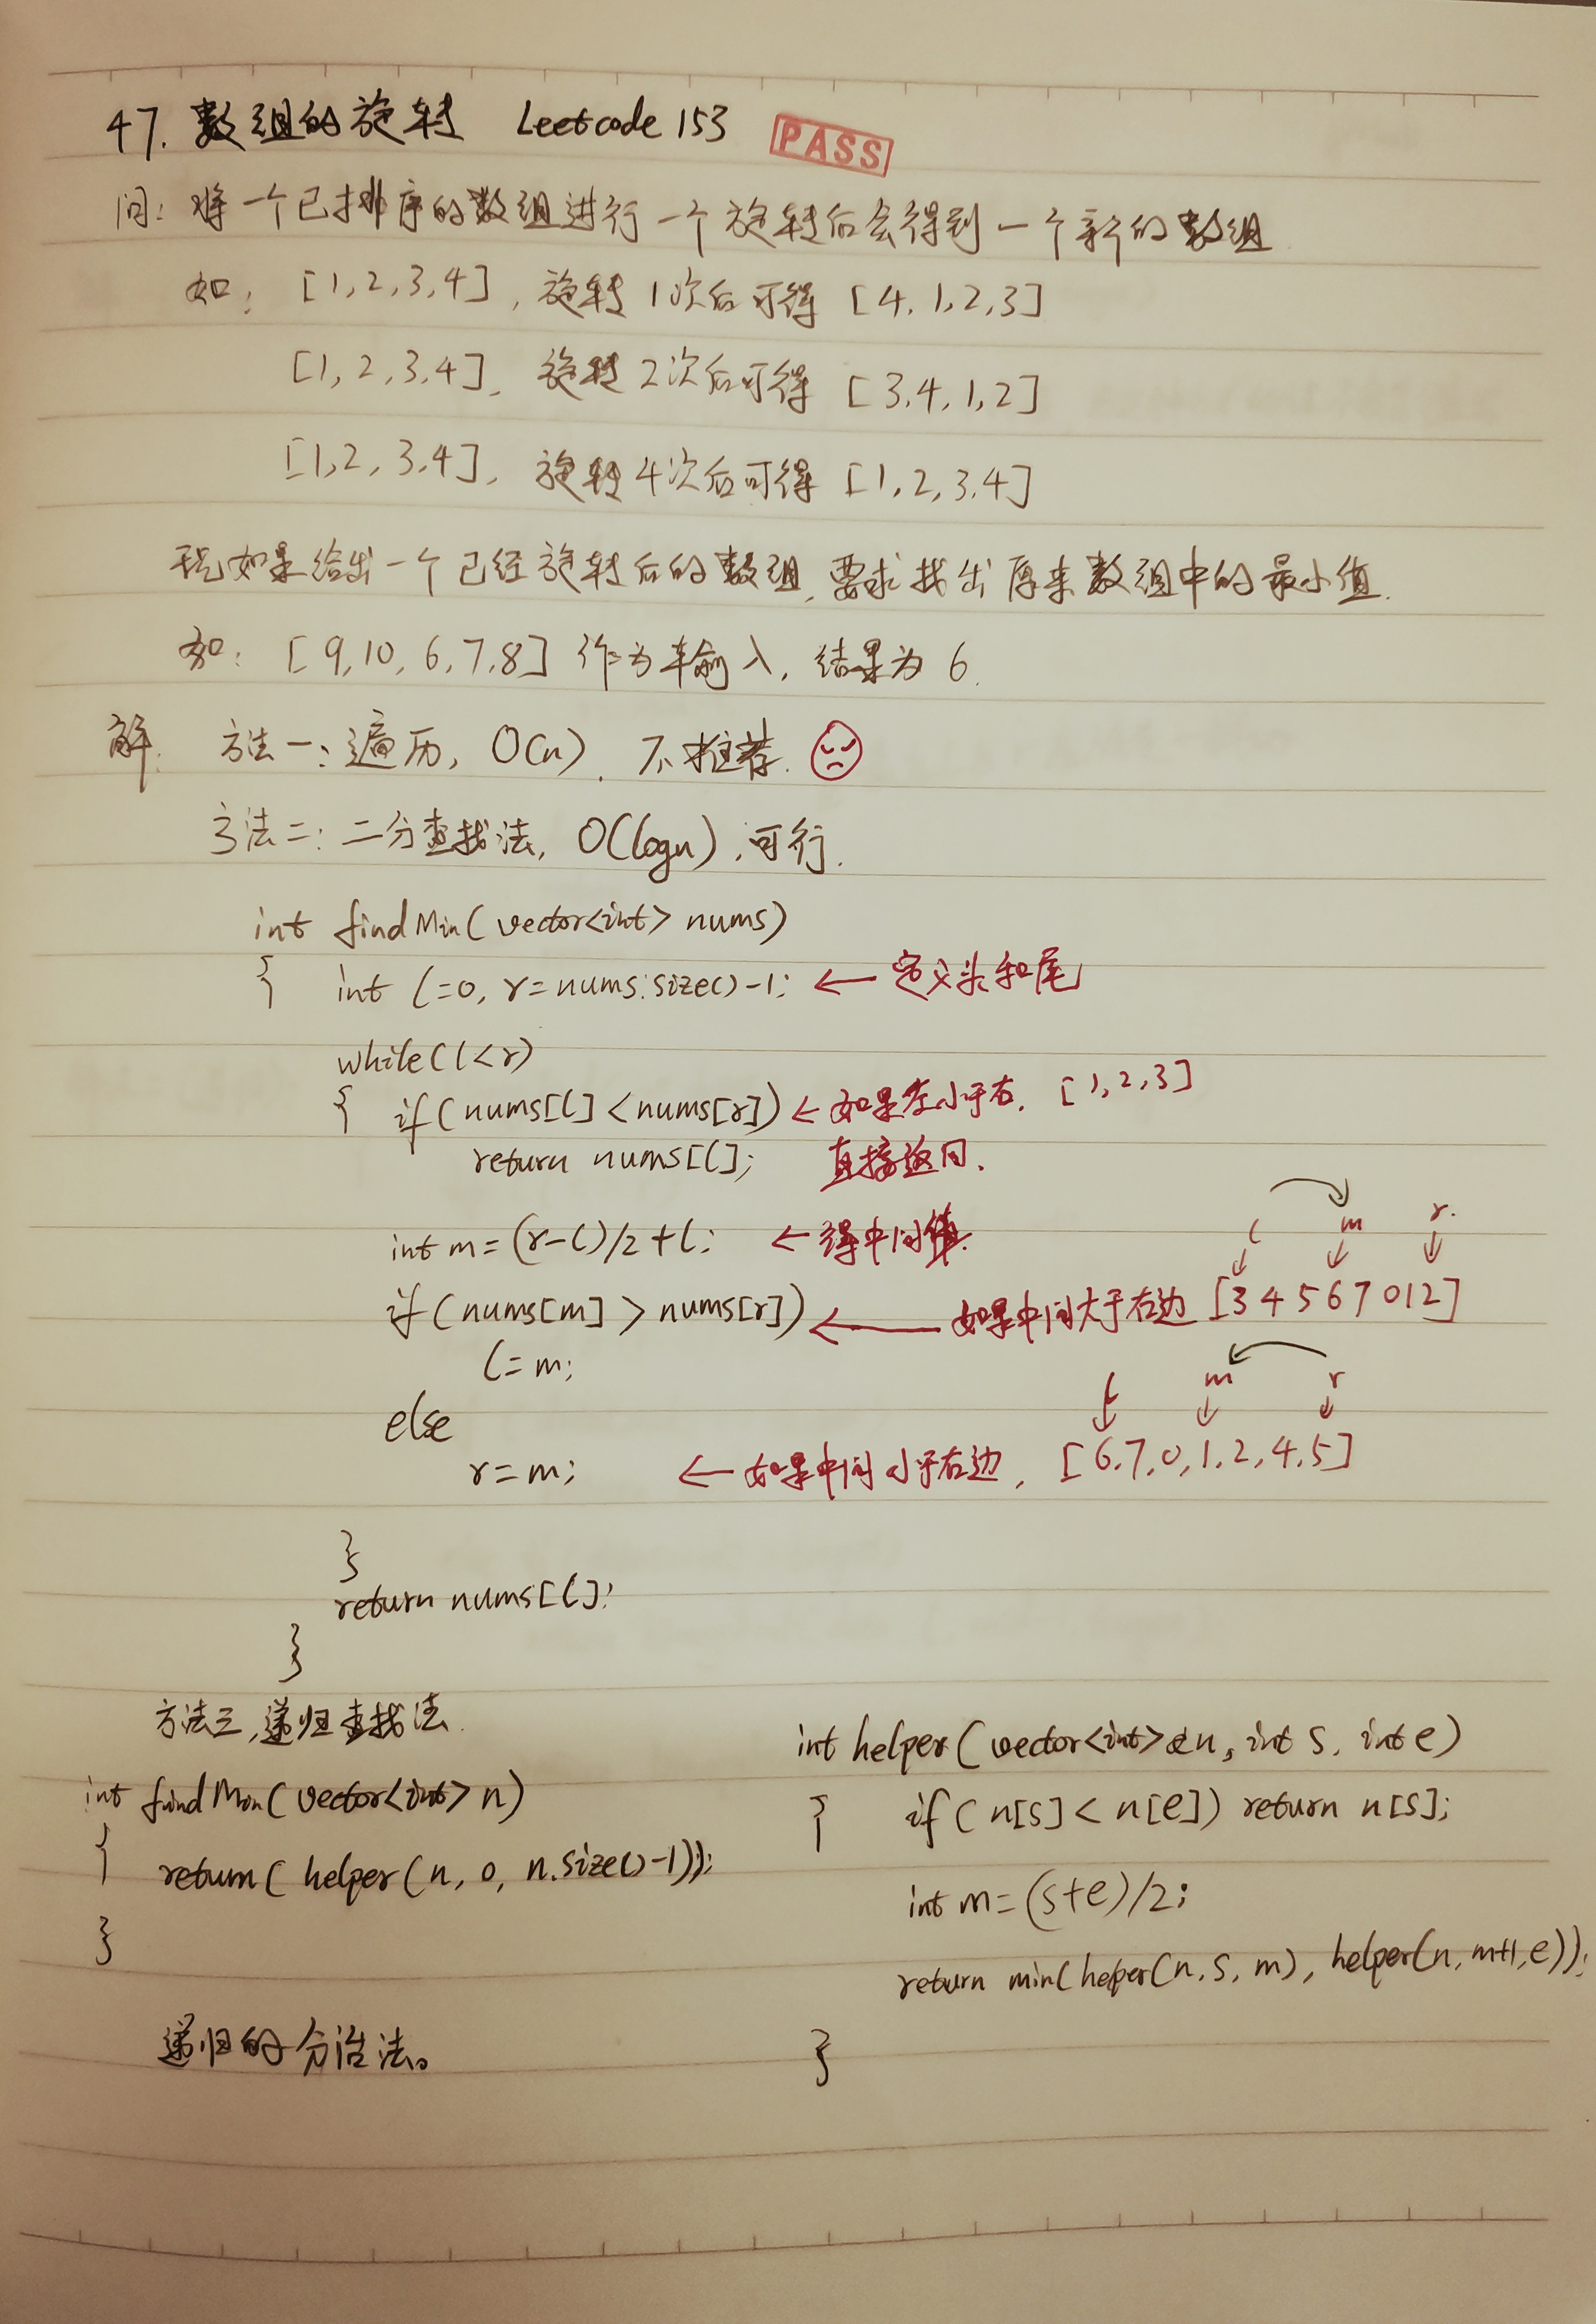 47. 数组的旋转 Leetcode 153 PASS
问: 将一个已排序的数组进行一个旋转后会得到一个新的数组
如: [1,2,3,4], 旋转1次后可得 [4,1,2,3]
[1,2,3,4], 旋转2次后可得 [3,4,1,2]
[1,2,3,4], 旋转4次后可得 [1,2,3,4]
现如果给出一个已经旋转后的数组, 要求找出原来数组中的最小值.
如: [9,10,6,7,8] 作为输入, 结果为 6.
解. 方法一: 遍历, O(n). 不推荐.
方法二: 二分查找法, O(logn), 可行.
int findMin(vector<int> nums)
{ int l=0, r=nums.size()-1; ← 定义头和尾
while(l<r)
{ if(nums[l]<nums[r]) ← 如果左小于右, [1,2,3]
return nums[l]; 直接返回.
l m r.
int m=(r-l)/2+l; ← 得中间值.
if(nums[m]>nums[r]) ← 如果中间大于右边 [3 4 5 6 7 0 1 2]
l=m;
l m r
else
r=m; ← 如果中间小于右边, [6,7,0,1,2,4,5]
}
return nums[l];
}
方法三, 递归查找法.
int findMin(vector<int> n)
{ return( helper(n, 0, n.size()-1));
}
递归的分治法。
int helper(vector<int> &n, int s, int e)
{ if(n[s]<n[e]) return n[s];
int m=(s+e)/2;
return min(helper(n,s,m), helper(n,m+1,e));
}